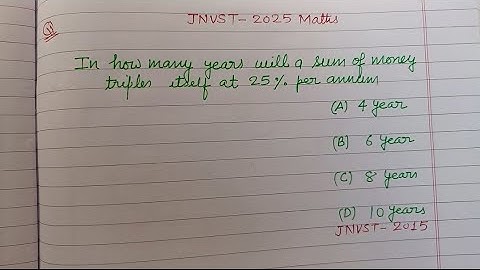 JNVST- 2025 Maths
Q
In how many years will a sum of money
triples itself at 25% per annum
(A) 4 year
(B) 6 year
(C) 8 years
(D) 10 years
JNVST- 2015